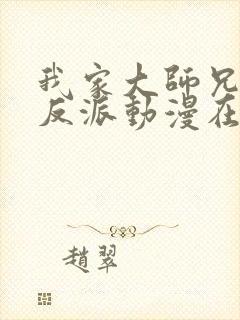 我家大師兄
反派動漫在
趙翠